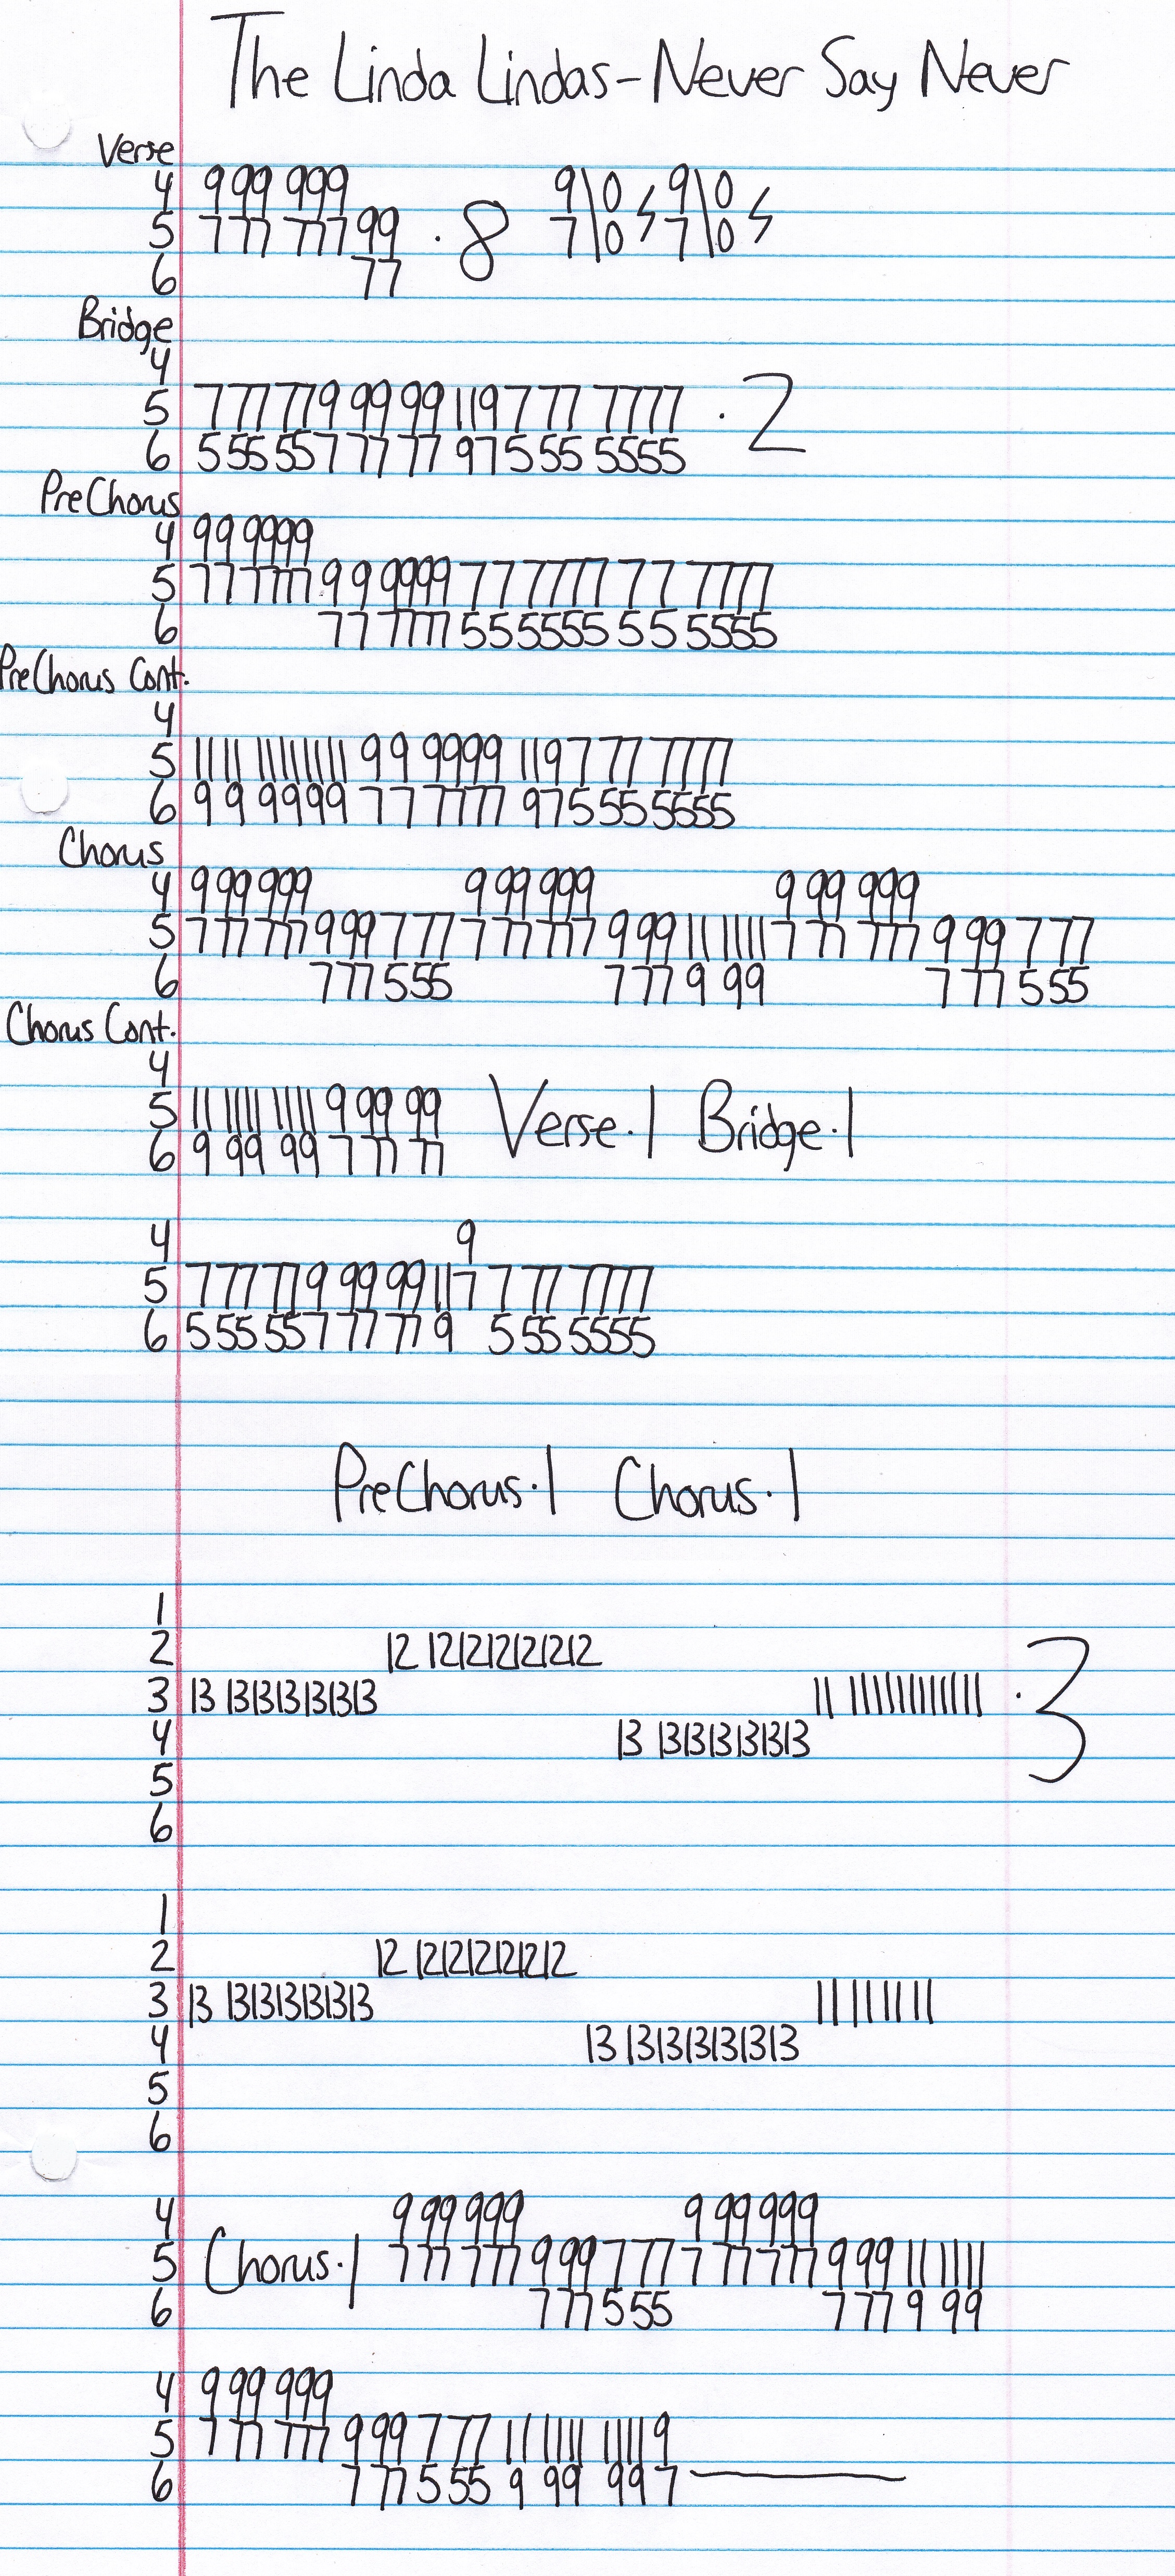 The Linda Lindas-Never Say Never
Verse
4 9 99 999 9\0 ϟ 9\0 ϟ
5 7 77 777 99 ·8 7\0 7\0
6 77
Bridge
4
5 7 77 77 9 99 99 11 9 7 77 7777 ·2
6 5 55 55 7 77 77 9 7 5 55 5555
PreChorus
4 9 9 9999
5 7 7 7777 9 9 9999 7 7 7777 7 7 7777
6 7 7 7777 5 5 5555 5 5 5555
PreChorus Cont.
4
5 11 11 11111111 9 9 9999 11 9 7 77 7777
6 9 9 9999 7 7 7777 9 7 5 55 5555
Chorus
4 9 99 999 9 99 999 9 99 999
5 7 77 777 9 99 7 77 7 77 777 9 99 11 1111 7 77 777 9 99 7 77
6 7 77 5 55 7 77 9 99 7 77 5 55
Chorus Cont.
4
5 11 1111 1111 9 99 99 Verse·1 Bridge·1
6 9 99 99 7 77 77
4 9
5 7 77 77 9 99 99 11 7 7 77 7777
6 5 55 55 7 77 77 9 5 55 5555
PreChorus·1 Chorus·1
1
2 12 121212121212
3 13 131313131313 11 111111111111 ·3
4 13 131313131313
5
6
1
2 12 121212121212
3 13 131313131313 11 11 11 11
4 13 131313131313
5
6
4 9 99 999 9 99 999
5 Chorus·1 7 77 777 9 99 7 77 7 77 777 9 99 11 1111
6 7 77 5 55 7 77 9 99
4 9 99 999
5 7 77 777 9 99 7 77 11 1111 1111 9
6 7 77 5 55 9 99 99 7